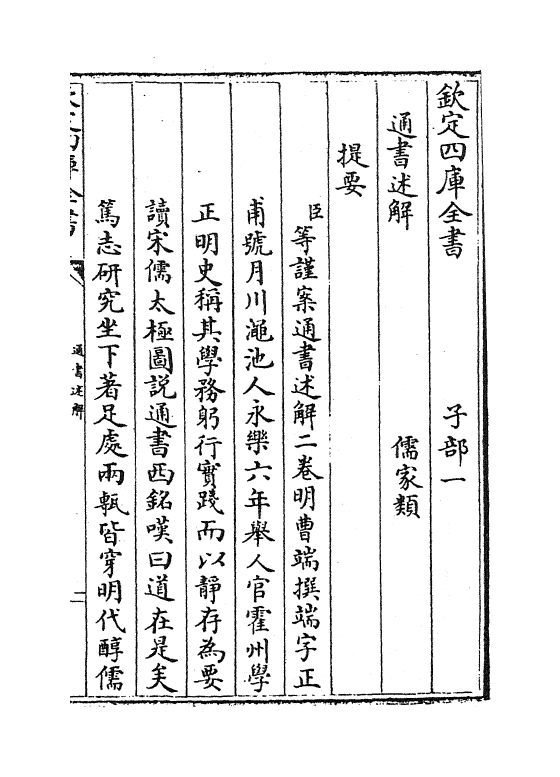 欽定四庫全書　子部一
通書述解　儒家類
提要
臣等謹案通書述解二卷明曹端撰端字正
甫號月川澠池人永樂六年舉人官霍州學
正明史稱其學務躬行實踐而以靜存為要
讀宋儒太極圖說通書西銘嘆曰道在是矣
篤志研究坐下著足處兩甎皆穿明代醇儒
通書述解